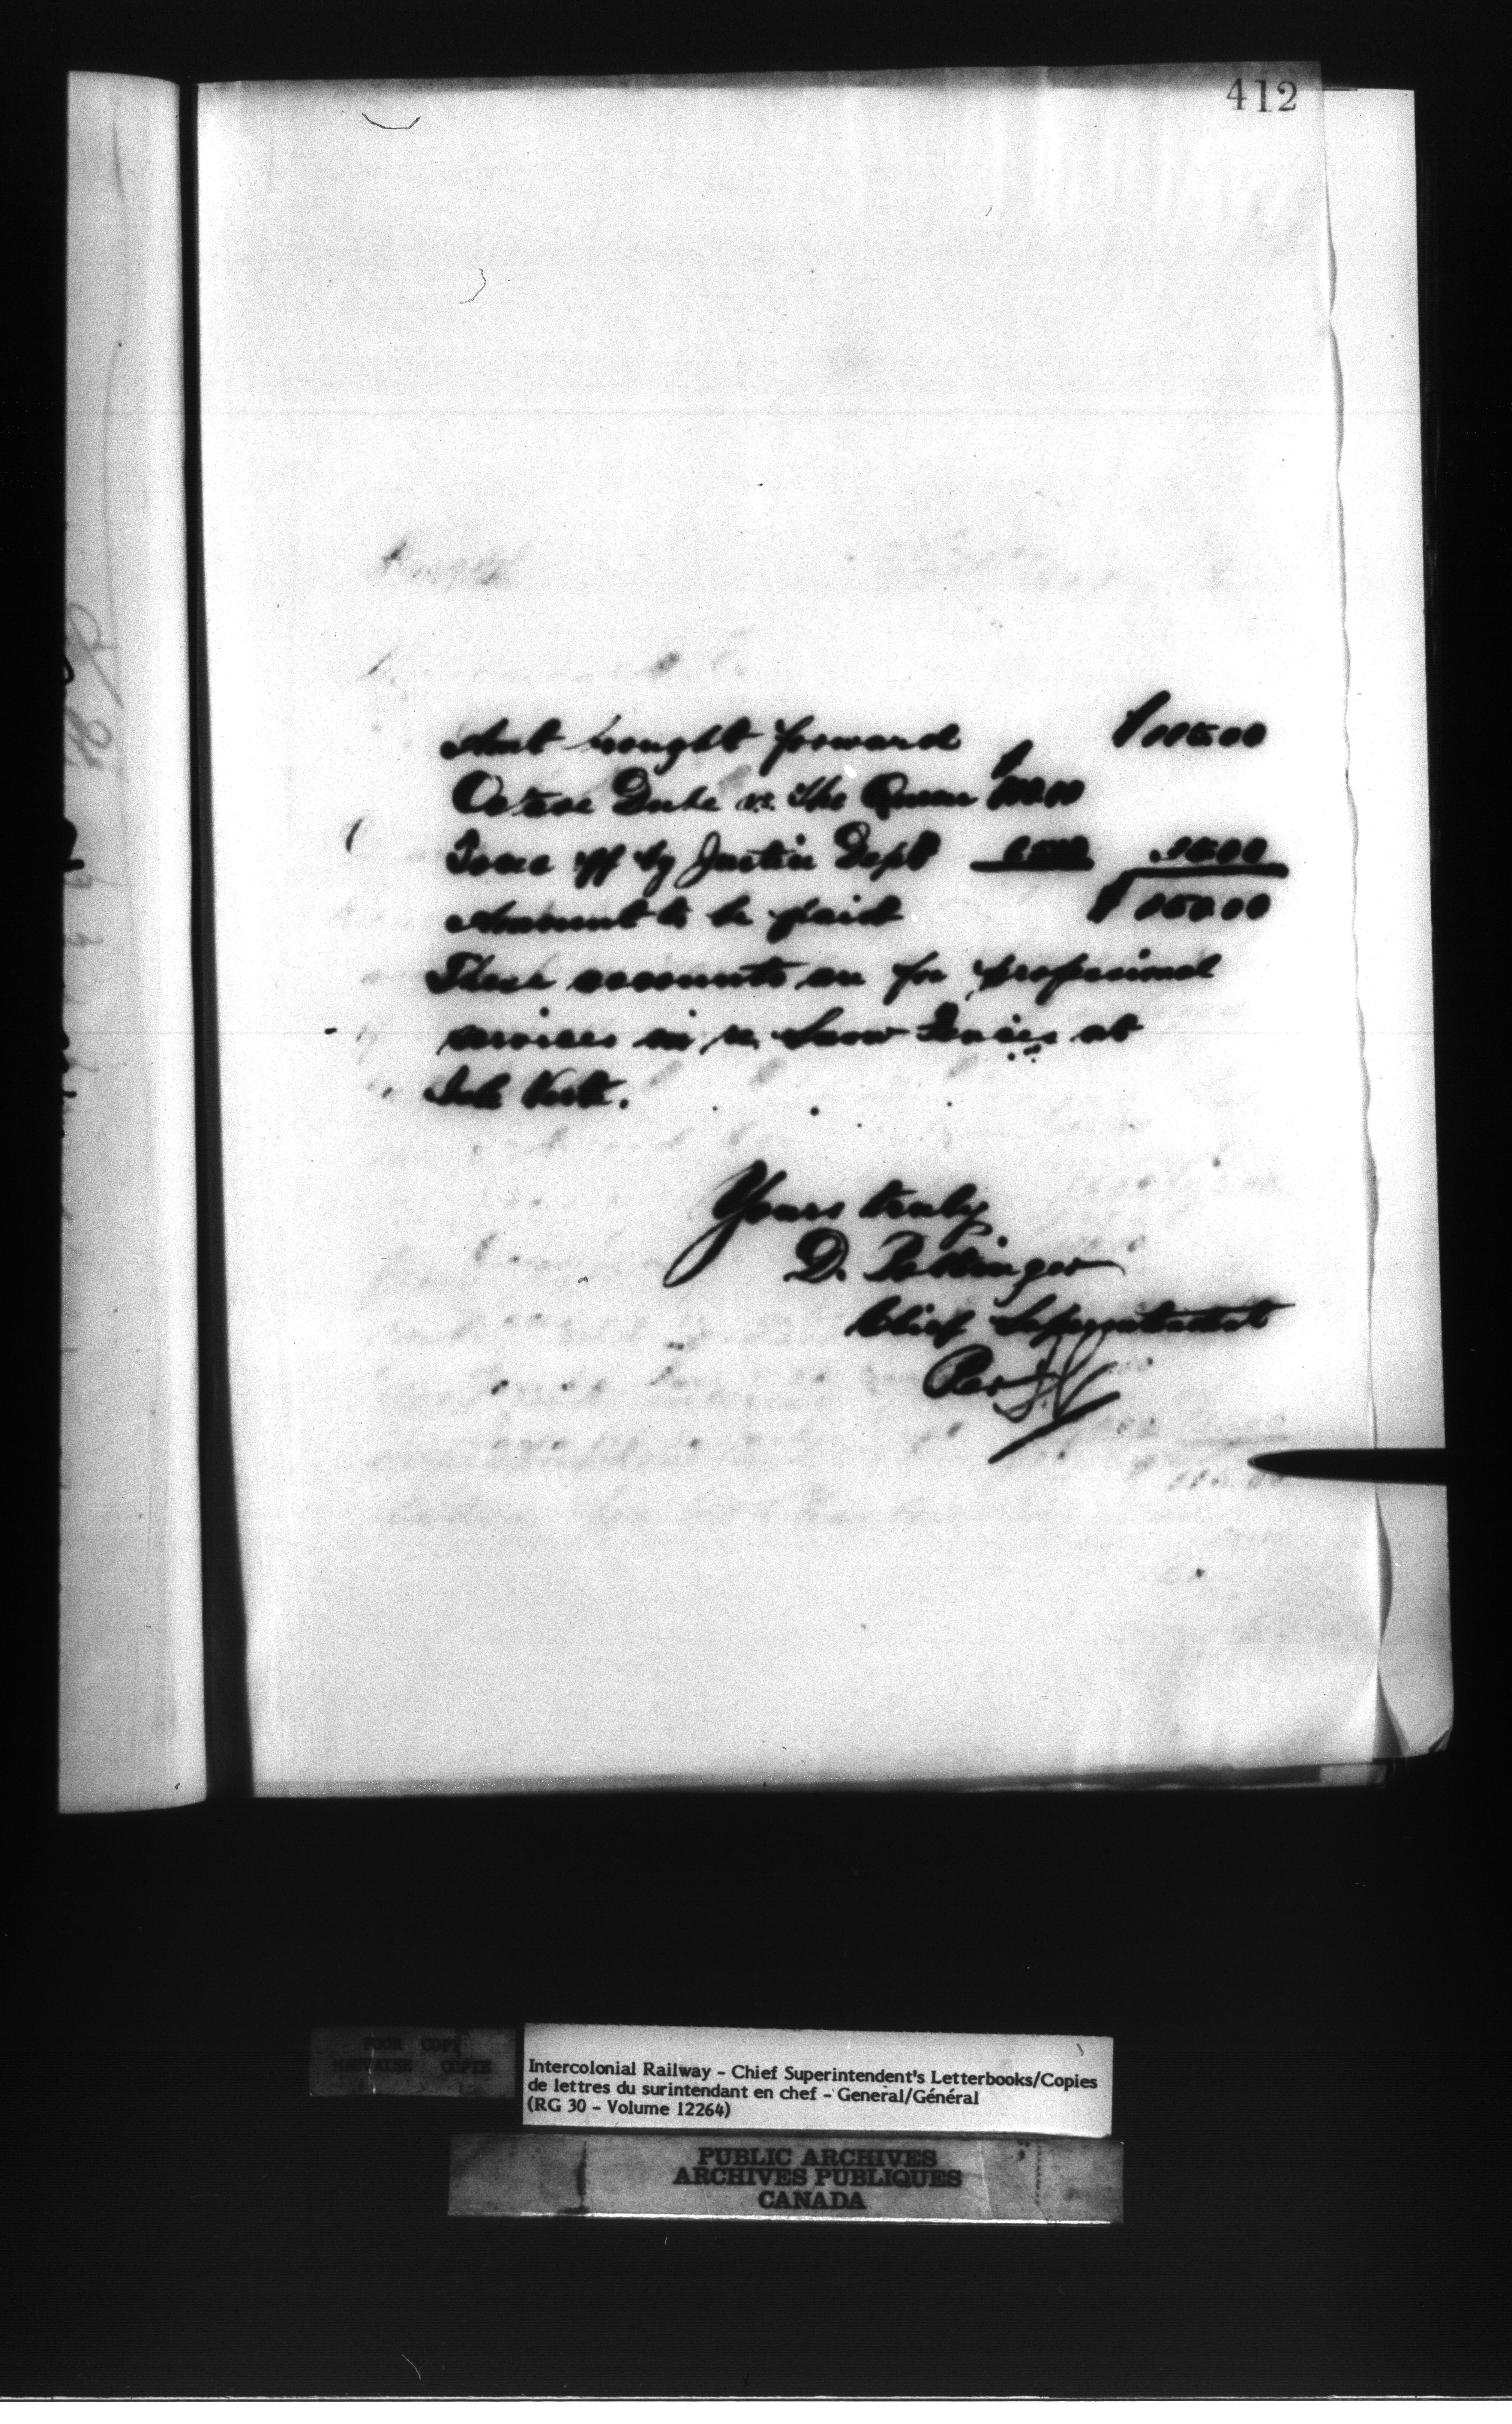 412
Amt brought forward $115.00
Octave Dube vs. The Queen $100.00
Taxed off by Justice Dept 65.00 35.00
Amount to be paid $150.00
These accounts are for professional
services in re Snow Fences at
Isle Verte.
Yours truly
D. Pottinger
Chief Superintendent
Per
POOR COPY
MAUVAISE COPIE
Intercolonial Railway - Chief Superintendent's Letterbooks/Copies
de lettres du surintendant en chef - General/Général
(RG 30 - Volume 12264)
PUBLIC ARCHIVES
ARCHIVES PUBLIQUES
CANADA